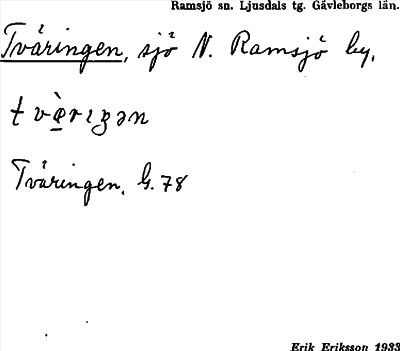 Ramsjö sn. Ljusdals tg. Gävleborgs län.
Tväringen, sjö N. Ramsjö by.
tvæ̀rıꞬən
Tväringen. G. 78
Erik Eriksson 1933